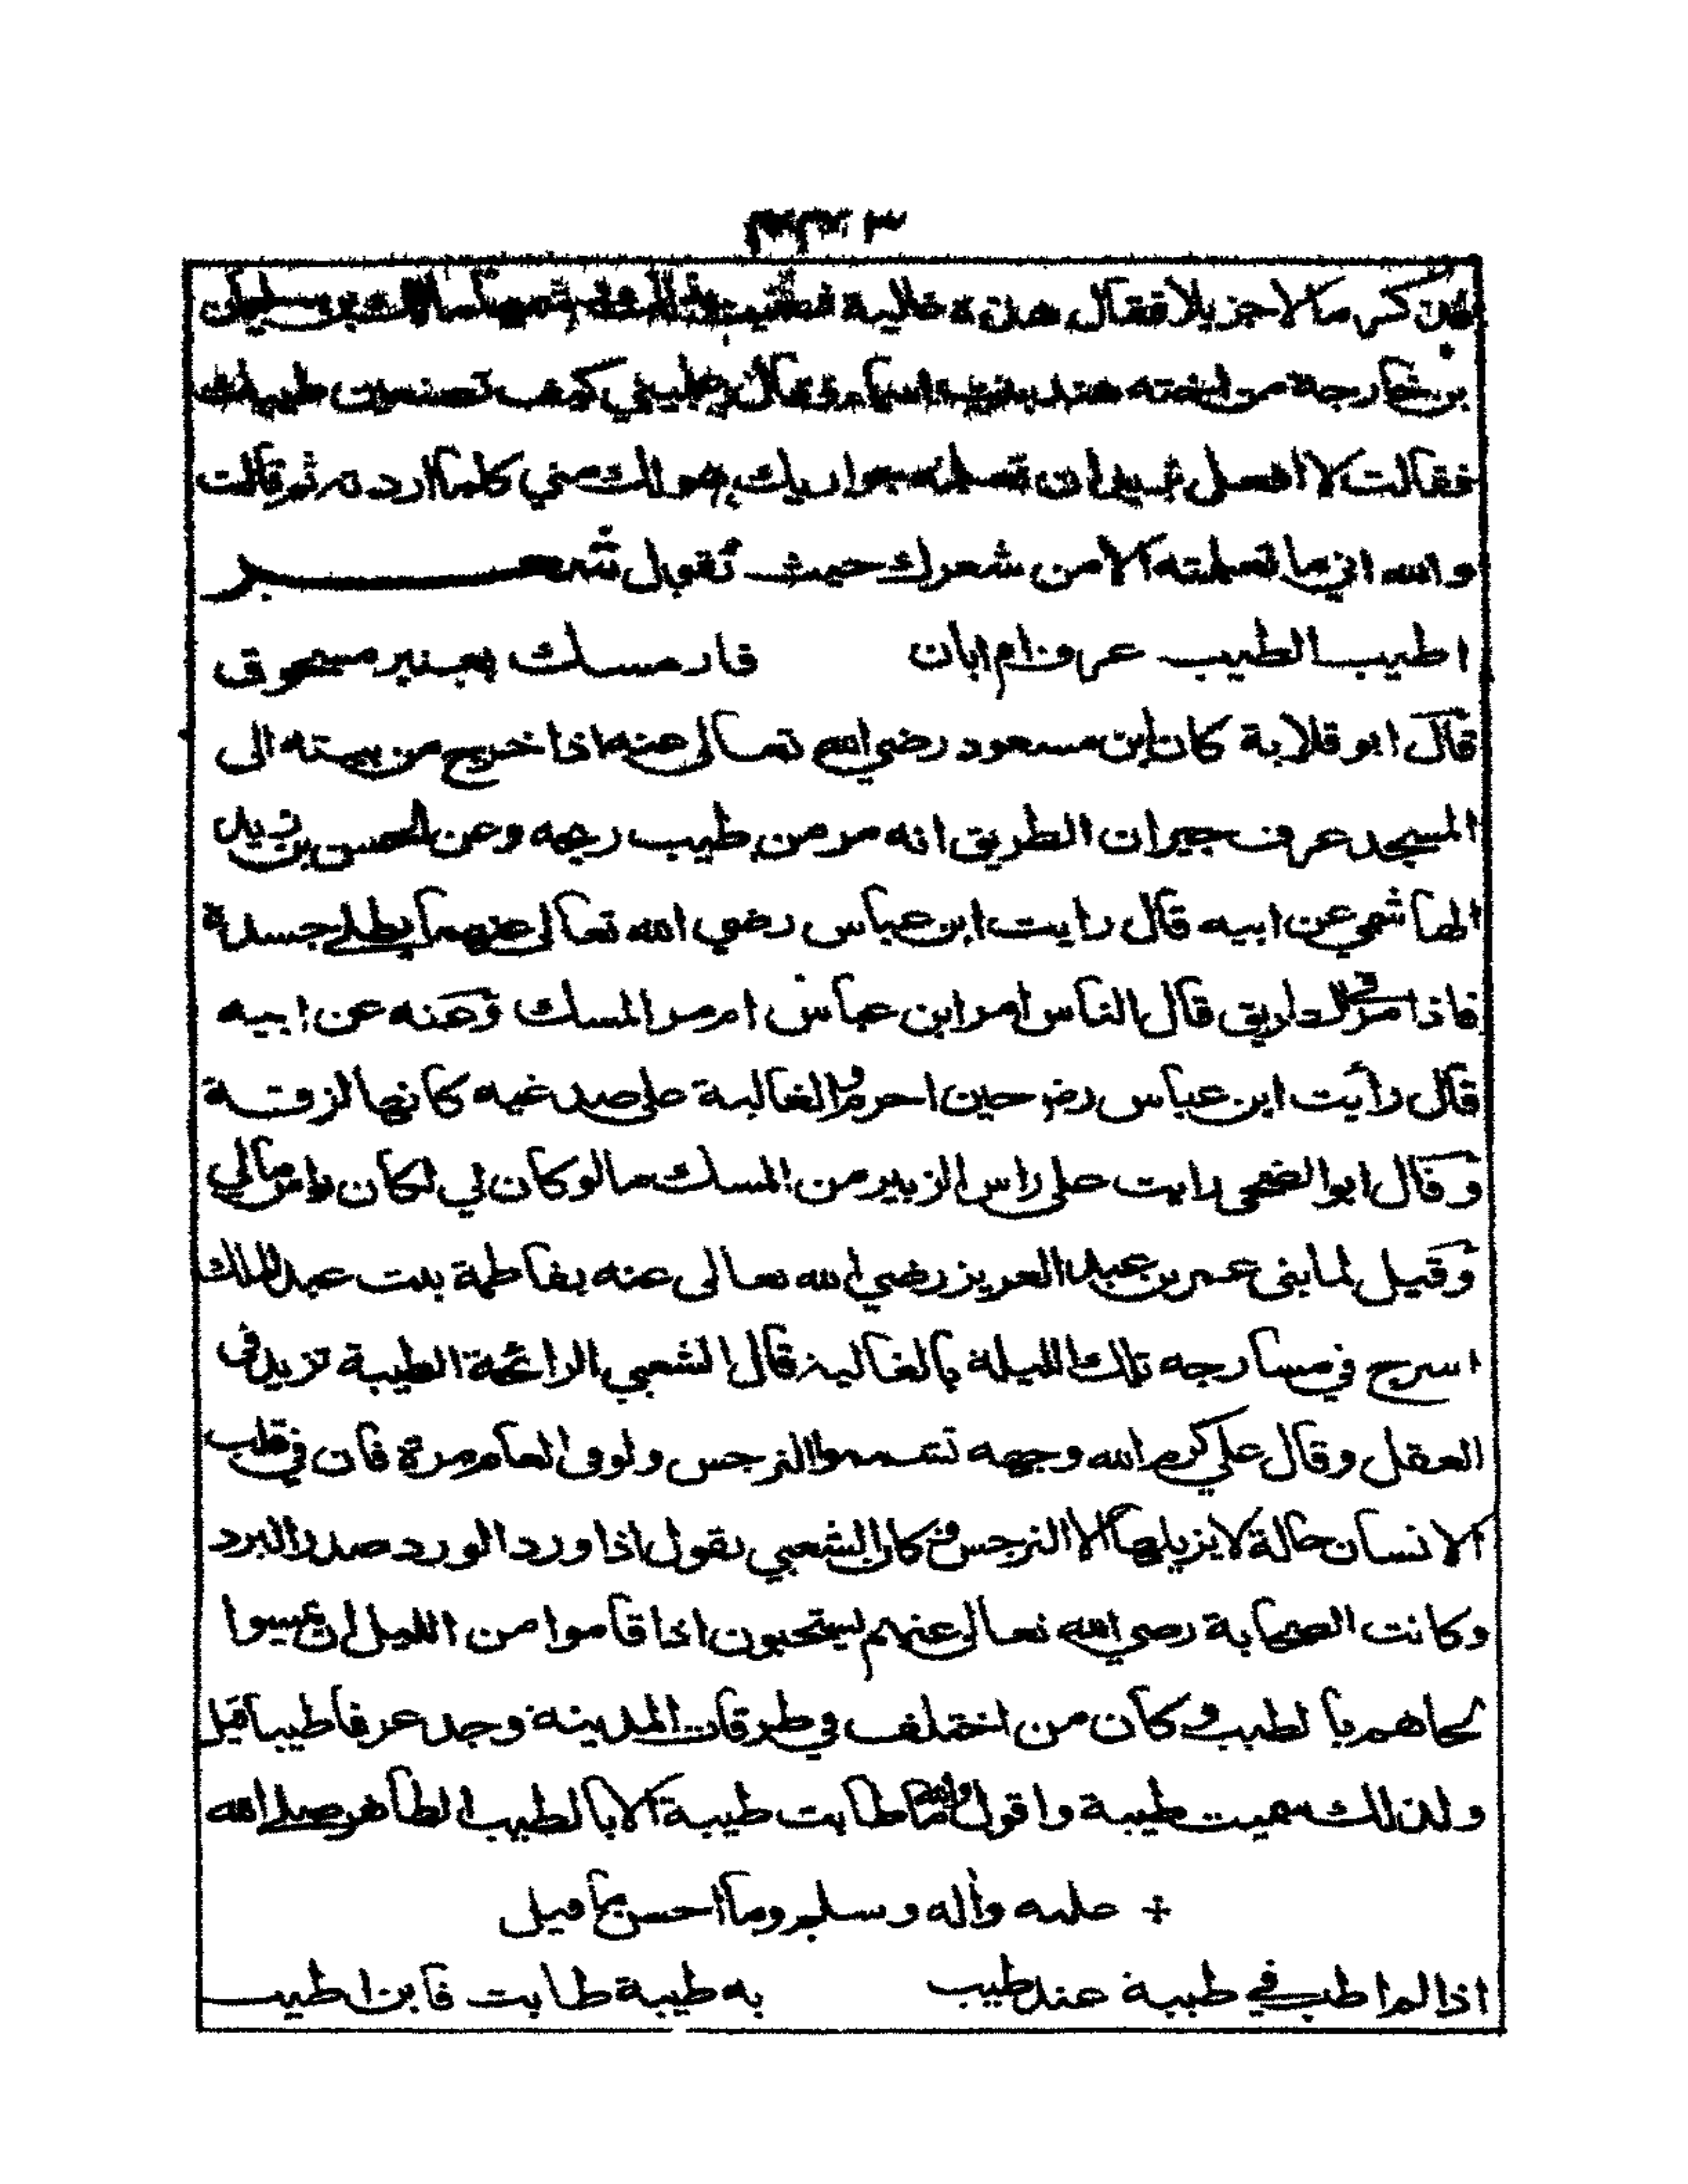 فذكر مالا جزيلا فقال هذه غالية فسميت بذلك شمها مالك بن سليمان
بن خارجة من اخته هند بنت اسماء وقال علميني كيف تصنعين طيبك
فقالت لا افعل تريد ان تعلمه جواريك هو لك مني كلما اردته ثم قالت
والله اني ما تعلمته الا من شعرك حيث تقول شعر
اطيب الطيب عرف ام ابان فار مسك بعنبر مسحوق
قال ابو قلابة كان ابن مسعود رضي الله تعالى عنه اذا خرج من بيته الى
المسجد عرف جيران الطريق انه مر من طيب ريحه وعن الحسن بن زيد
الهاشمي عن ابيه قال رايت ابن عباس رضي الله تعالى عنهما يطلي جسده
فاذا مر في الطريق قال الناس امر ابن عباس ام مر المسك وعنه عن ابيه
قال رأيت ابن عباس رض حين احرم والغالية على صدغيه كانها لزقة
وقال ابو الضحى رايت على راس الزبير من المسك ما لو كان لي لكان راس مالي
وقيل لما بنى عمر بن عبد العزيز رضي الله تعالى عنه بفاطمة بنت عبد الملك
اسرج في مسارجه تلك الليلة بالغالية قال الشعبي الرائحة الطيبة تزيد في
العقل وقال علي كرم الله وجهه تشمموا النرجس ولو في العام مرة فان في قلب
الانسان حالة لا يزيلها الا النرجس وكان الشعبي يقول اذا ورد الورد صدر البرد
وكانت الصحابة رضي الله تعالى عنهم يستحبون اذا قاموا من الليل ان يمسوا
لحاهم بالطيب وكان من اختلف في طرقات المدينة وجد عرفا طيبا قيل
ولذلك سميت طيبة واقول والله ما طابت طيبة الا بالطيب الطاهر صلى الله
عليه واله وسلم وما احسن ما قيل
اذا لم اطب في طيبة عند طيب به طيبة طابت فاين اطيب